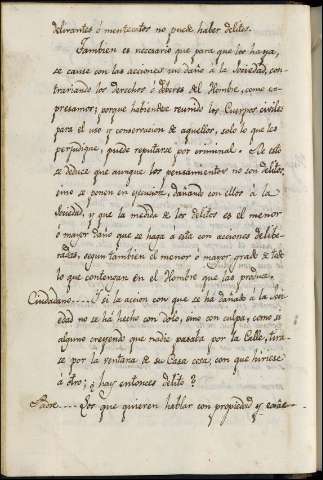 delirantes ó mentecatos no puede haber delitos.
Tambien es necesario que para que los haya,
se cause con las acciones un daño à la Sociedad, con-
trariando los derechos ò deberes del Hombre, como ex-
presamos; porque habiendose reunido los Cuerpos civiles
para el uso y conservacion de aquellos, solo lo que les
perjudique, puede reputarse por criminal. De esto
se deduce que aunque los pensamientos no son delitos,
sino se ponen en ejecucion, dañando con ellos à la
Sociedad, y que la medida de los delitos es el menor
ò mayor daño que se haga à ésta con acciones delibe-
radas, segun tambien el menor ò mayor grado de
lo que contengan en el Hombre que las produce.
Ciudadano.... Y si la accion con que se ha dañado à la Soci-
edad no se há hecho con dolo, sino con culpa, como si
alguno creyendo que nadie pasaba por la Calle, tira-
se por la ventana de su Casa cosa, con que hiriese
à otro; ¿hay entonces delito?
.... Los que quieren hablar con propiedad y